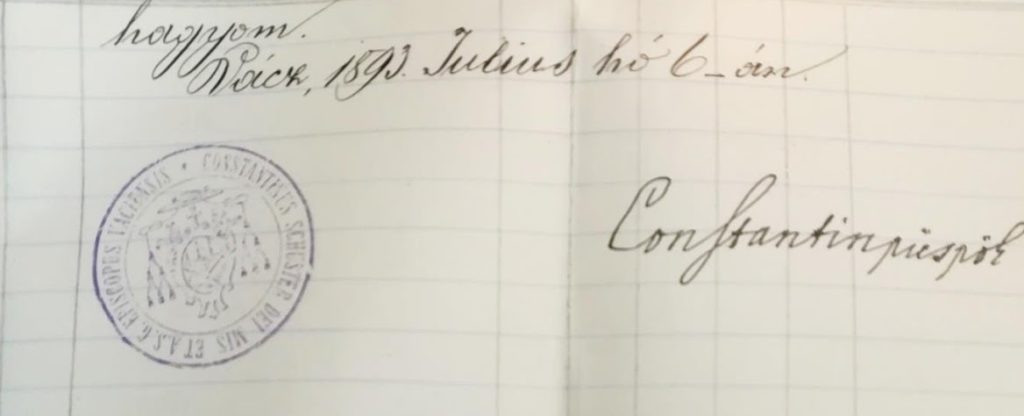 hagyom.
Vácz, 1893. Julius hó 6-án.
CONSTANTINUS SCHUSTER DEI MIS ET A.S.G. EPISCOPUS VACIENSIS
Constantin püspök